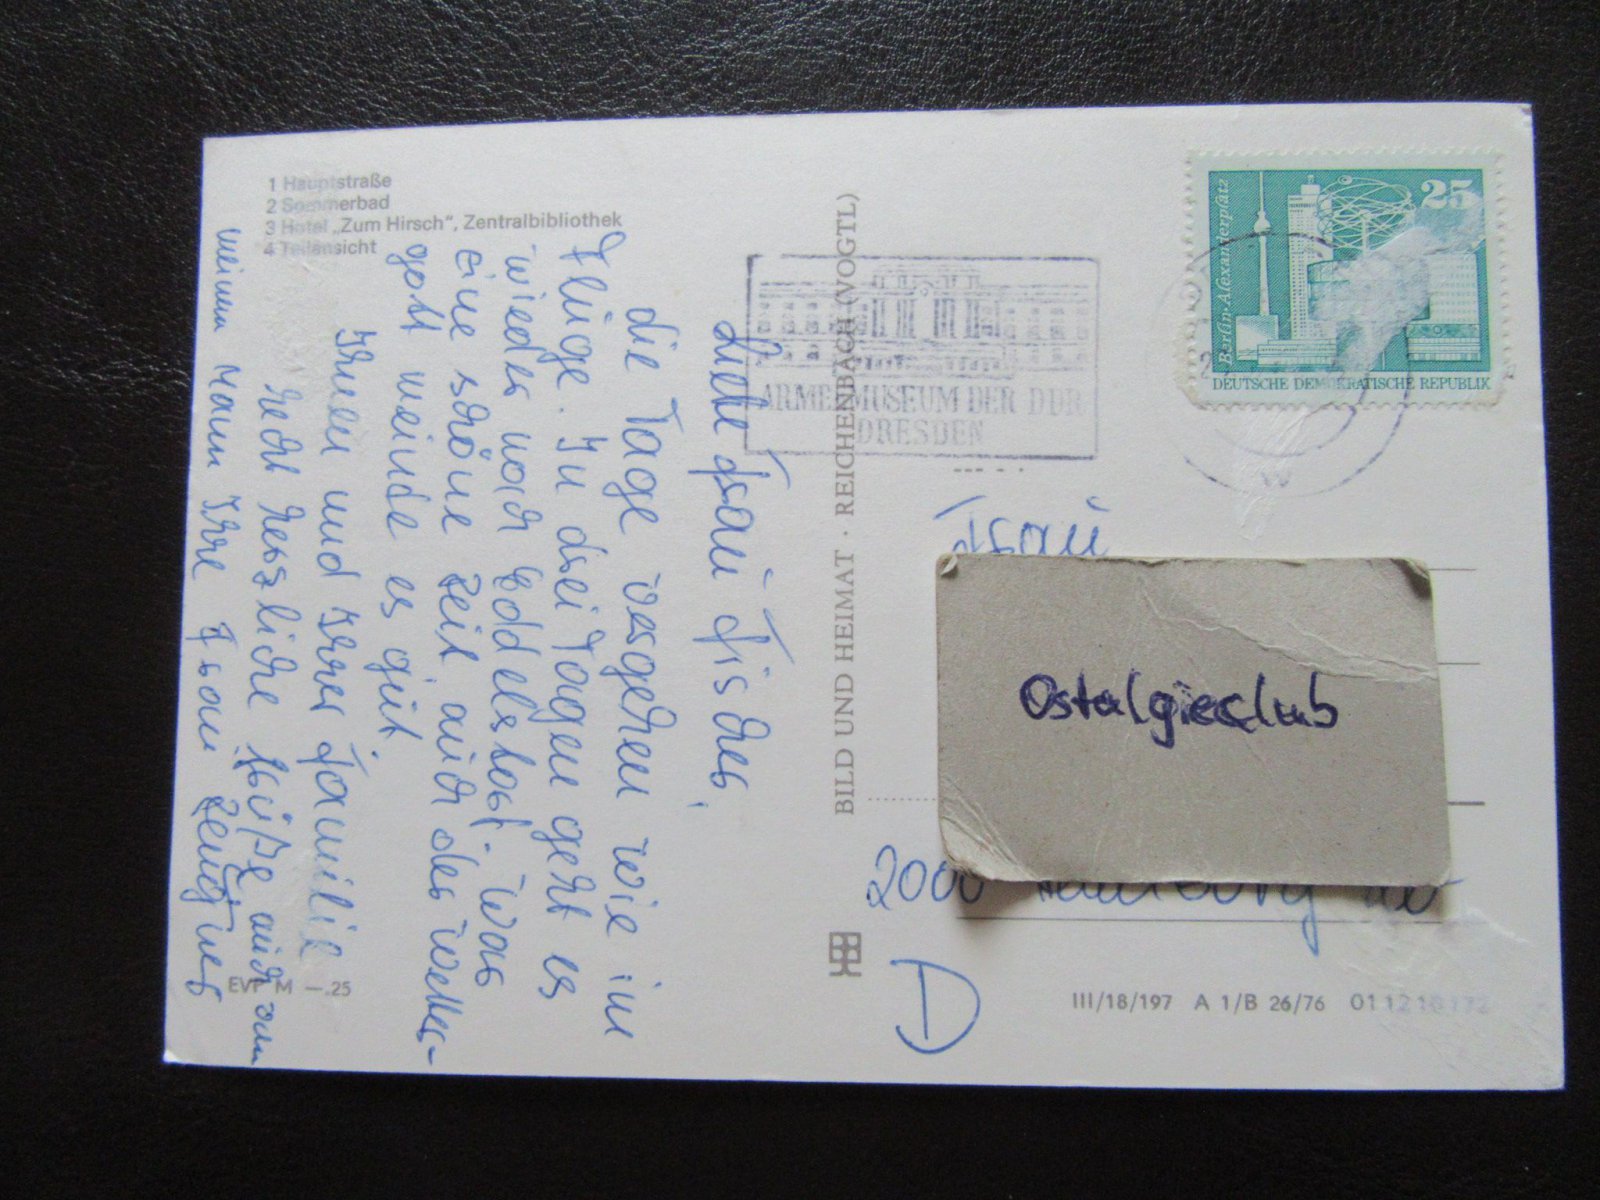 1 Hauptstraße
2 Sommerbad
3 Hotel „Zum Hirsch“, Zentralbibliothek
4 Teilansicht
Liebe Frau Fischer,
die Tage vergehen wie im
Fluge. In drei Tagen geht es
wieder nach
eine schöne Zeit auch der Wetter-
gott meinte es gut.
Ihnen und Ihrer Familie
recht herzliche Grüße auch von
meinem Mann Ihre Frau
EVP M –.25
BILD UND HEIMAT · REICHENBACH (VOGTL)
ARMEEMUSEUM DER DDR
DRESDEN
Berlin · Alexanderplatz
25
DEUTSCHE DEMOKRATISCHE REPUBLIK
Frau
Ostalgieclub
2000 Hamburg
D
III/18/197 A 1/B 26/76 01 12 10 172